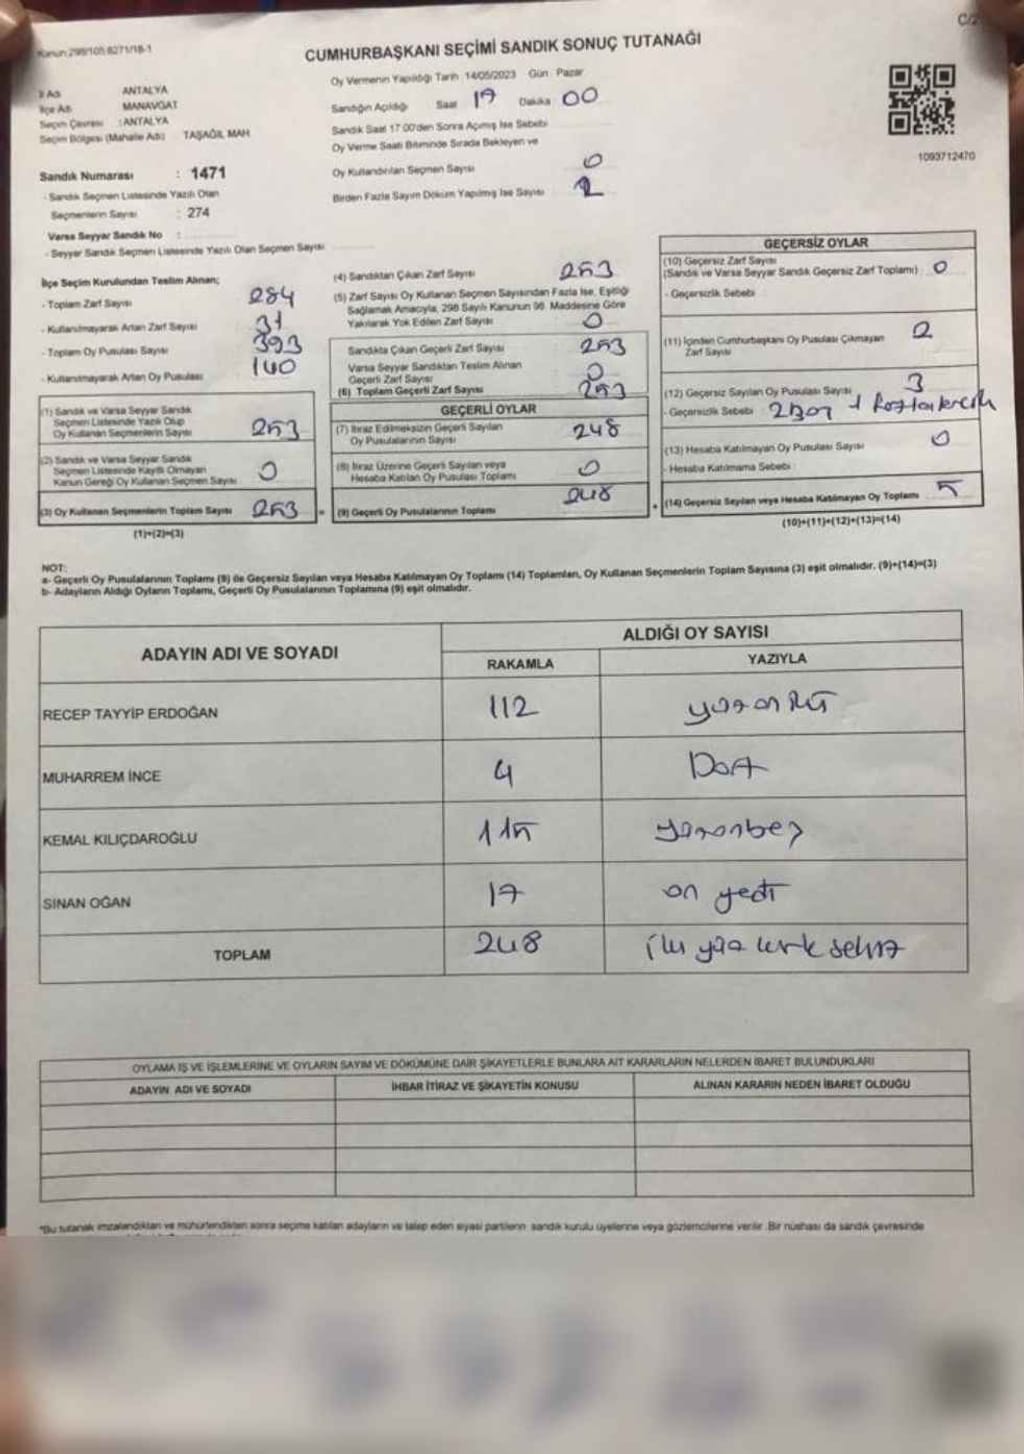 Kanun:298/105 8271/18-1
CUMHURBAŞKANI SEÇİMİ SANDIK SONUÇ TUTANAĞI
İl Adı ANTALYA
İlçe Adı MANAVGAT
Seçim Çevresi : ANTALYA
Seçim Bölgesi (Mahalle Adı) TAŞAĞIL MAH
Sandık Numarası : 1471
- Sandık Seçmen Listesinde Yazılı Olan
Seçmenlerin Sayısı : 274
Varsa Seyyar Sandık No :
- Seyyar Sandık Seçmen Listesinde Yazılı Olan Seçmen Sayısı
Oy Vermenin Yapıldığı Tarih 14/05/2023 Gün Pazar
Sandığın Açıldığı Saat 17 Dakika 00
Sandık Saat 17:00'den Sonra Açımış İse Sebebi
Oy Verme Saati Bitiminde Sırada Bekleyen ve
Oy Kullandırılan Seçmen Sayısı 0
Birden Fazla Sayım Döküm Yapılmış İse Sayısı
1093712470
İlçe Seçim Kurulundan Teslim Alınan;
- Toplam Zarf Sayısı 284
- Kullanılmayarak Artan Zarf Sayısı 31
- Toplam Oy Pusulası Sayısı 393
- Kullanılmayarak Artan Oy Pusulası 140
(1) Sandık ve Varsa Seyyar Sandık
Seçmen Listesinde Yazılı Olup
Oy Kullanan Seçmenlerin Sayısı 253
(2) Sandık ve Varsa Seyyar Sandık
Seçmen Listesinde Kayıtlı Olmayan
Kanun Gereği Oy Kullanan Seçmen Sayısı 0
(3) Oy Kullanan Seçmenlerin Toplam Sayısı 253 =
(1)+(2)=(3)
(4) Sandıktan Çıkan Zarf Sayısı 253
(5) Zarf Sayısı Oy Kullanan Seçmen Sayısından Fazla İse, Eşitliği
Sağlamak Amacıyla, 298 Sayılı Kanunun 98. Maddesine Göre
Yakılarak Yok Edilen Zarf Sayısı 0
Sandıkta Çıkan Geçerli Zarf Sayısı 253
Varsa Seyyar Sandıktan Teslim Alınan
Geçerli Zarf Sayısı 0
(6) Toplam Geçerli Zarf Sayısı 253
GEÇERLİ OYLAR
(7) İtiraz Edilmeksizin Geçerli Sayılan
Oy Pusulalarının Sayısı 248
(8) İtiraz Üzerine Geçerli Sayılan veya
Hesaba Katılan Oy Pusulası Toplamı 0
(9) Geçerli Oy Pusulalarının Toplamı 248 +
GEÇERSİZ OYLAR
(10) Geçersiz Zarf Sayısı
(Sandık ve Varsa Seyyar Sandık Geçersiz Zarf Toplamı) 0
- Geçersizlik Sebebi :
(11) İçinden Cumhurbaşkanı Oy Pusulası Çıkmayan
Zarf Sayısı 2
(12) Geçersiz Sayılan Oy Pusulası Sayısı 3
- Geçersizlik Sebebi
(13) Hesaba Katılmayan Oy Pusulası Sayısı 0
- Hesaba Katılmama Sebebi :
(14) Geçersiz Sayılan veya Hesaba Katılmayan Oy Toplamı 5
(10)+(11)+(12)+(13)=(14)
NOT:
a- Geçerli Oy Pusulalarının Toplamı (9) ile Geçersiz Sayılan veya Hesaba Katılmayan Oy Toplamı (14) Toplamları, Oy Kullanan Seçmenlerin Toplam Sayısına (3) eşit olmalıdır. (9)+(14)=(3)
b- Adayların Aldığı Oyların Toplamı, Geçerli Oy Pusulalarının Toplamına (9) eşit olmalıdır.
ADAYIN ADI VE SOYADI ALDIĞI OY SAYISI
RAKAMLA YAZIYLA
RECEP TAYYİP ERDOĞAN 112 yüzoniki
MUHARREM İNCE 4 Dört
KEMAL KILIÇDAROĞLU 115 yüzonbeş
SİNAN OĞAN 17 on yedi
TOPLAM 248 iki yüz kırk sekiz
OYLAMA İŞ VE İŞLEMLERİNE VE OYLARIN SAYIM VE DÖKÜMÜNE DAİR ŞİKAYETLERLE BUNLARA AİT KARARLARIN NELERDEN İBARET BULUNDUKLARI
ADAYIN ADI VE SOYADI İHBAR İTİRAZ VE ŞİKAYETİN KONUSU ALINAN KARARIN NEDEN İBARET OLDUĞU
*Bu tutanak imzalandıktan ve mühürlendikten sonra seçime katılan adayların ve talep eden siyasi partilerin sandık kurulu üyelerine veya gözlemcilerine verilir. Bir nüshası da sandık çevresinde